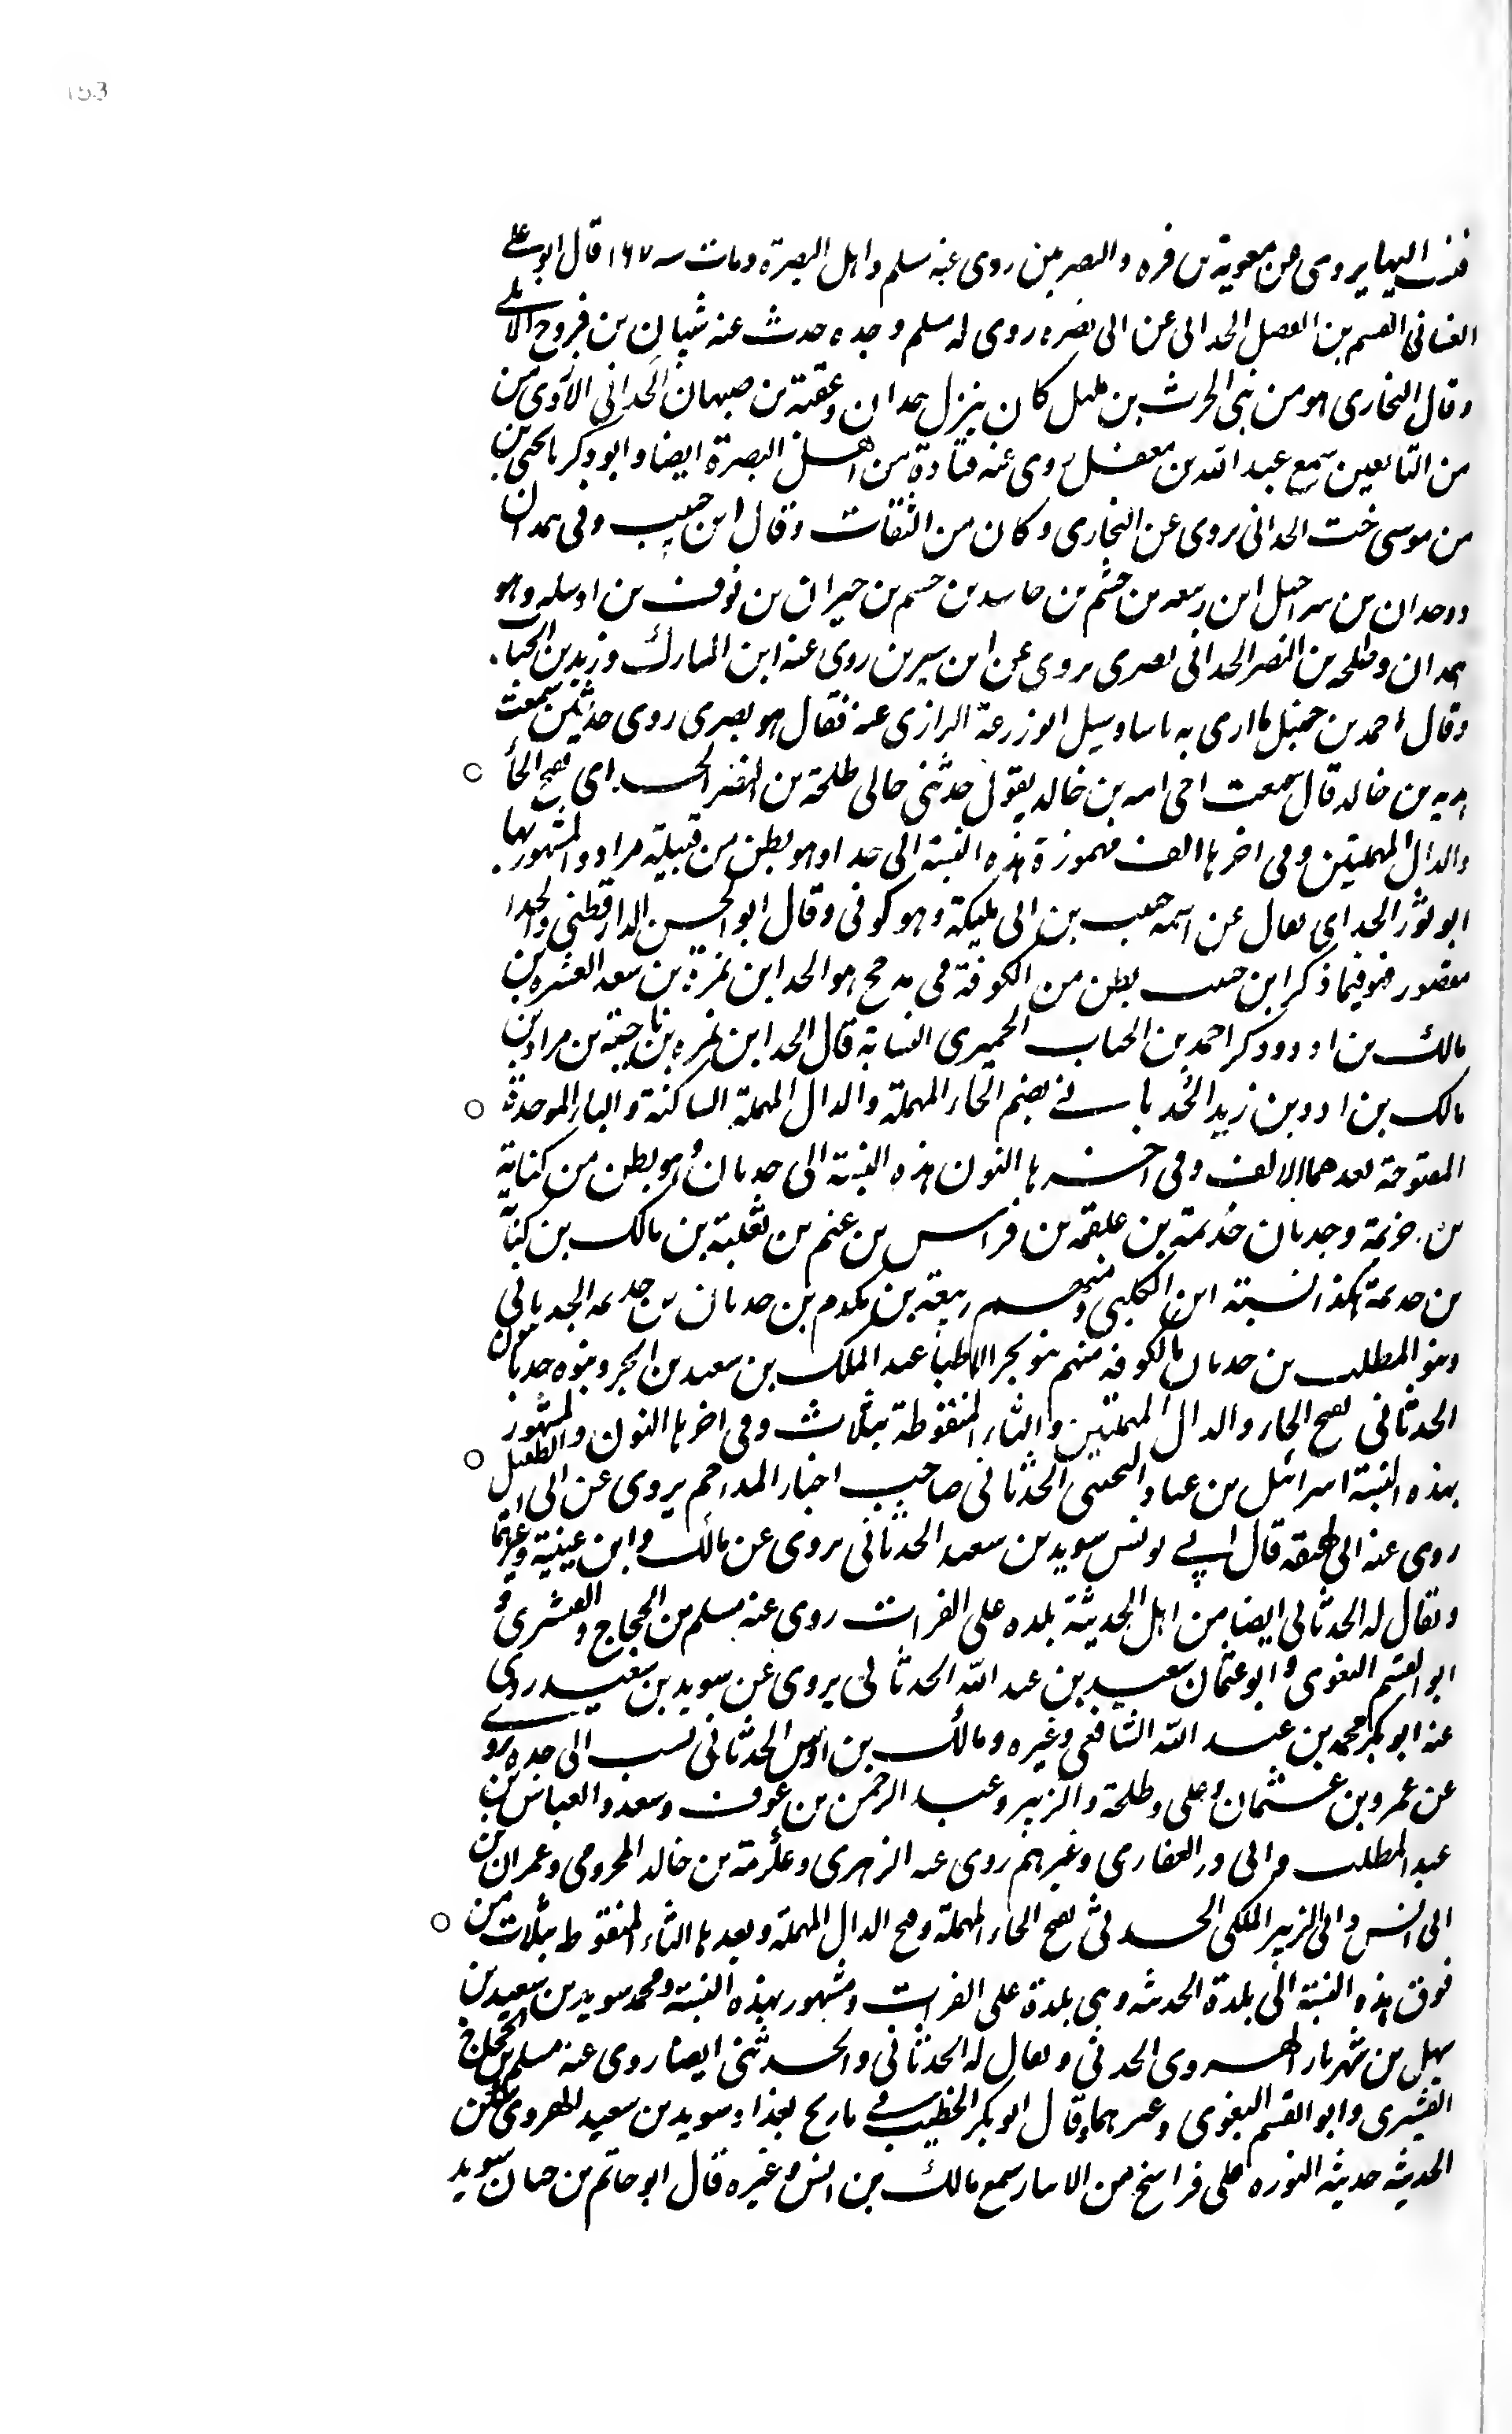 153
فنسب اليها يروى عن معوية بن قره والبصريين روى عنه مسلم واهل البصرة ومات سه ١٦٧ قال ابو على
الغسانى القسم بن الفضل الحدانى عن ابى نضره روى له مسلم وحده حدث عنه شيبان بن فروخ الابلى
وقال البخارى هو من بنى الحرث بن كان ينزل حدان وعقبة بن صهبان الحدانى الازدى من
من التابعين سمع عبد الله بن مغفل روى عنه قتادة من اهل البصرة ايضا وابو زكريا يحيى بن
من موسى خت الحدانى يروى عن البخارى وكان من الثقات وقال ابن حبيب وفى همدان
ذوحدان بن شراحيل ابن ربيعه بن جشم بن حاسد بن جشم بن خيران بن نوف بن اوسله وهو
همدان وطلحه بن النضر الحدانى بصرى يروى عن ابن سيرين روى عنه ابن المبارك وزيد بن الحباب
وقال احمد بن حنبل ما ارى به باسا وسيل ابو زرعة الرازى عنه فقال هو بصرى روى حديثين سمعت
هدبه بن خالد قال سمعت اخى اميه بن خالد يقول حدثنى خالى طلحة بن النضر الحداى بفتح الحا ○
والدال المهملتين وفى اخرها الف مهموزة هذه النسبة الى حدا وهو بطن من قبيلة مراد والمشهور بها
ابو ثور الحداى يقال عن اسمه حبيب بن ابى مليكة وهو كوفى وقال ابو الحسن الدارقطنى والحدا
مقصور فهو فيما ذكر ابن حبيب بطن من الكوفة فى مذحج هو الحدا بن نمرة بن سعد العشره بن
مالك بن ادد وذكر احمد بن الحباب الحميرى النسابة قال الحدا بن نمره بن ناجية بن مراد بن
مالك بن ادد بن زيد الحُدبانى بضم الحاء المهملة والدال المهملة الساكنة والباء الموحدة ○
المفتوحة بعدهما الالف وفى اخرها النون هذه النسبة الى حدبان وهو بطن من كنانة
من خزيمة وحدبان خذيمة بن علقمة بن فراس بن غنم بن ثعلبة بن مالك بن كنانة
من خديمة هكذا نسبة ابن الكلبى ومنهم ربيعة بن مكدم بن حدبان بن جذيمه الحدبانى
وبنو المطلب بن حدبان بالكوفه منهم بنو بجر الاطبا عبد الملك بن سعيد بن ابجر وبنوه حدبانيون
الحدثانى بفتح الحاء والدال المهملتين والثاء المنقوطة بثلاث وفى اخرها النون والمشهور ○
بهذه النسبة اسرائيل بن عباد الحدثانى صاحب اخبار الملاحم يروى عن ابى الطفيل
روى عنه ابن لهيعة قال ابن يونس سويد بن سعيد الحدثانى يروى عن مالك وابن عيينة وغيرهما
ويقال له الحدثانى ايضا من اهل الحديثة بلده على الفرات روى عنه مسلم بن الحجاج القشيرى و
ابو القسم البغوى وابو عثمان سعيد بن عبد الله الحدثانى يروى عن سويد بن سعيد روى
عنه ابو بكر محمد بن عبد الله الشافعى وغيره ومالك بن اوس الحدثانى نسب الى جده يروى
عن عمر وبن عثمان وعلى وطلحة والزبير وعبد الرحمن بن عوف وسعد والعباس بن
عبد المطلب وابى ذر الغفارى وغيرهم روى عنه الزهرى وعكرمة بن خالد المخزومى وعمران بن
ابى انس وابى الزبير المكى الحدثى بفتح الحاء المهملة وفتح الدال المهملة وبعدها الثاء المنقوط بثلاث من ○
فوق هذه النسبة الى بلدة الحديثه وهى بلدة على الفرات ومشهور بهذه النسبة ومحمد سويد بن سعيد بن
سهل بن شهريار الهروى الحدثى ويقال له الحدثانى والحدثنى ايضا روى عنه مسلم بن الحجاج
القشيرى وابو القسم البغوى وغيرهما وقال ابو بكر الخطيب فى تاريخ بغداد سويد بن سعيد الهروى سكن
الحديثه حديثه النوره على فراسخ من الانبار سمع مالك بن انس وغيره قال ابو حاتم بن حبان سويد